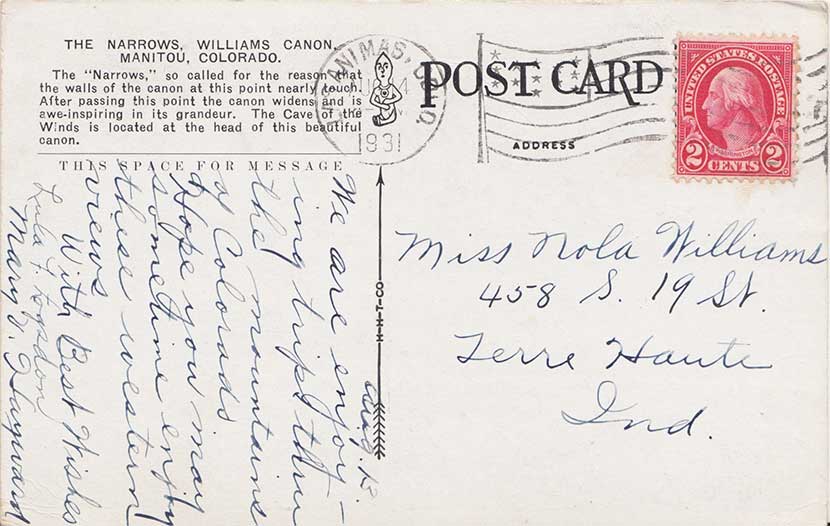 THE NARROWS, WILLIAMS CANON,
MANITOU, COLORADO.
The "Narrows," so called for the reason that
the walls of the canon at this point nearly touch.
After passing this point the canon widens and is
awe-inspiring in its grandeur. The Cave of the
Winds is located at the head of this beautiful
canon.
THIS SPACE FOR MESSAGE
ANIMAS, COLO.
1931
POST CARD
ADDRESS
UNITED STATES POSTAGE
WASHINGTON
2 CENTS 2
C.T. H-H CO
Aug. 13.
We are enjoy-
ing trips thru
the mountains
of Colorado
Hope you may
sometime enjoy
these western
views
With Best Wishes
Lula F.
Mary D. Hayward
Miss Nola Williams
458 S. 19 St.
Terre Haute
Ind.